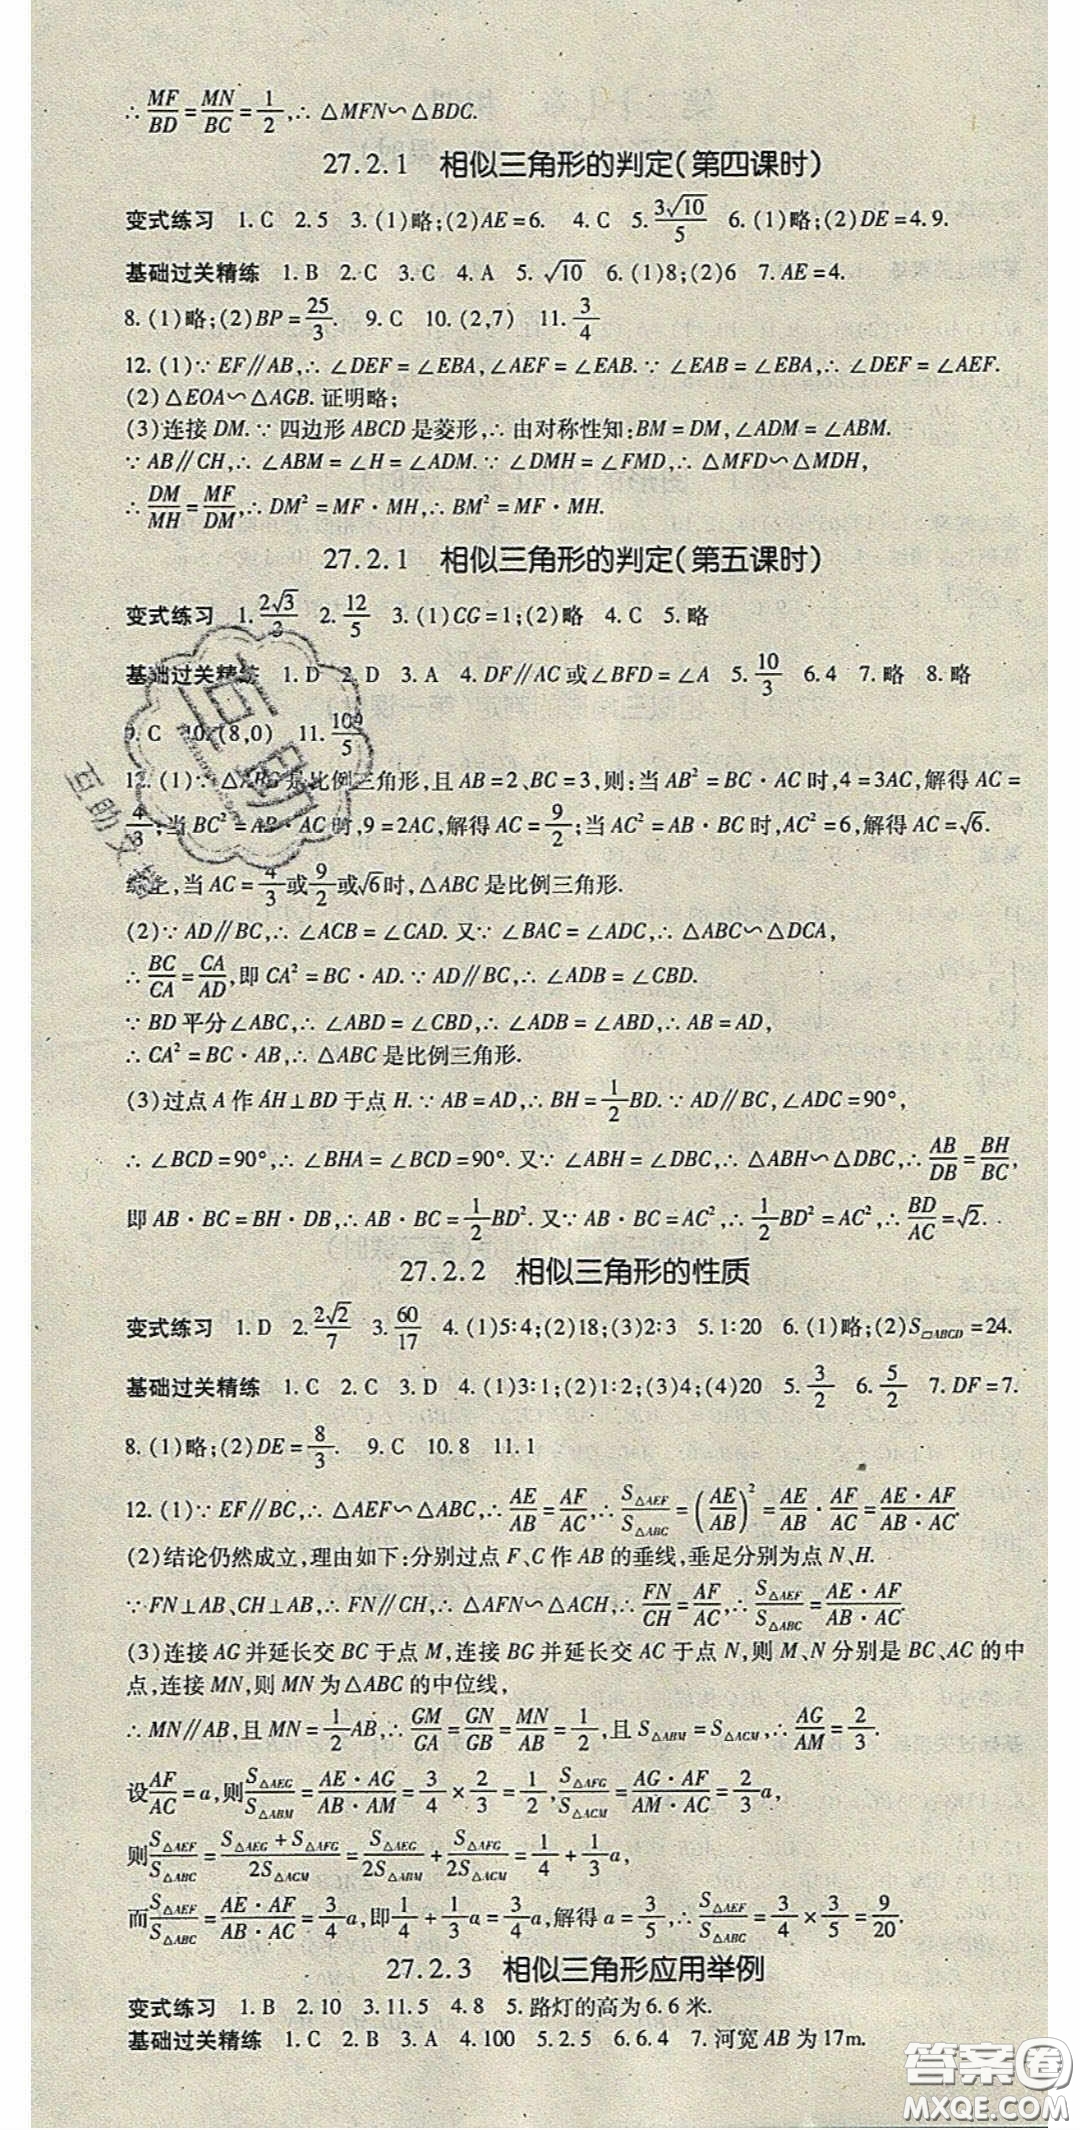 ∴ MF/BD = MN/BC = 1/2, ∴ △MFN∽△BDC.
27.2.1 相似三角形的判定(第四课时)
变式练习 1.C 2.5 3.(1)略;(2)AE=6. 4.C 5.3√10/5 6.(1)略;(2)DE=4.9.
基础过关精练 1.B 2.C 3.C 4.A 5.√10 6.(1)8;(2)6 7.AE=4.
8.(1)略;(2)BP=25/3. 9.C 10.(2,7) 11.3/4
12.(1)∵EF∥AB,∴∠DEF=∠EBA,∠AEF=∠EAB.∵∠EAB=∠EBA,∴∠DEF=∠AEF.
(2)△EOA∽△AGB.证明略;
(3)连接DM.∵四边形ABCD是菱形,∴由对称性知:BM=DM,∠ADM=∠ABM.
∵AB∥CH,∴∠ABM=∠H=∠ADM.∵∠DMH=∠FMD,∴△MFD∽△MDH,
∴DM/MH=MF/DM,∴DM²=MF·MH,∴BM²=MF·MH.
27.2.1 相似三角形的判定(第五课时)
变式练习 1.2√3/3 2.12/5 3.(1)CG=1;(2)略 4.C 5.略
基础过关精练 1.D 2.D 3.A 4.DF∥AC或∠BFD=∠A 5.10/3 6.4 7.略 8.略
9.C 10.(8,0) 11.109/5
12.(1)∵△ABC是比例三角形,且AB=2、BC=3,则:当AB²=BC·AC时,4=3AC,解得AC=
4/3;当BC²=AB·AC时,9=2AC,解得AC=9/2;当AC²=AB·BC时,AC²=6,解得AC=√6.
综上,当AC=4/3或9/2或√6时,△ABC是比例三角形.
(2)∵AD∥BC,∴∠ACB=∠CAD.又∵∠BAC=∠ADC,∴△ABC∽△DCA,
∴BC/CA=CA/AD,即CA²=BC·AD.∵AD∥BC,∴∠ADB=∠CBD.
∵BD平分∠ABC,∴∠ABD=∠CBD,∴∠ADB=∠ABD,∴AB=AD,
∴CA²=BC·AB,∴△ABC是比例三角形.
(3)过点A作AH⊥BD于点H.∵AB=AD,∴BH=1/2BD.∵AD∥BC,∠ADC=90°,
∴∠BCD=90°,∴∠BHA=∠BCD=90°.又∵∠ABH=∠DBC,∴△ABH∽△DBC,∴AB/DB=BH/BC,
即AB·BC=BH·DB,∴AB·BC=1/2BD².又∵AB·BC=AC²,∴1/2BD²=AC²,∴BD/AC=√2.
27.2.2 相似三角形的性质
变式练习 1.D 2.2√2/7 3.60/17 4.(1)5:4;(2)18;(3)2:3 5.1:20 6.(1)略;(2)S▱ABCD=24.
基础过关精练 1.C 2.C 3.D 4.(1)3:1;(2)1:2;(3)4;(4)20 5.3/2 6.5/2 7.DF=7.
8.(1)略;(2)DE=8/3. 9.C 10.8 11.1
12.(1)∵EF∥BC,∴△AEF∽△ABC,∴AE/AB=AF/AC,∴S△AEF/S△ABC=(AE/AB)²=AE/AB·AF/AC=AE·AF/AB·AC.
(2)结论仍然成立,理由如下:分别过点F、C作AB的垂线,垂足分别为点N、H.
∵FN⊥AB、CH⊥AB,∴FN∥CH,∴△AFN∽△ACH,∴FN/CH=AF/AC,∴S△AEF/S△ABC=AE·AF/AB·AC.
(3)连接AG并延长交BC于点M,连接BG并延长交AC于点N,则M、N分别是BC、AC的中
点,连接MN,则MN为△ABC的中位线,
∴MN∥AB,且MN=1/2AB,∴GM/GA=GN/GB=MN/AB=1/2,且S△ABM=S△ACM,∴AG/AM=2/3.
设AF/AC=a,则S△AEG/S△ABM=AE·AG/AB·AM=3/4×2/3=1/2,S△AFG/S△ACM=AG·AF/AM·AC=2/3a,
则S△AEF/S△ABC=S△AEG+S△AFG/2S△ACM=S△AEG/2S△ABM+S△AFG/2S△ACM=1/4+1/3a,
而S△AEF/S△ABC=AE·AF/AB·AC=3/4a,即1/4+1/3a=3/4a,解得a=3/5,∴S△AEF/S△ABC=3/4×3/5=9/20.
27.2.3 相似三角形应用举例
变式练习 1.B 2.10 3.11.5 4.8 5.路灯的高为6.6米.
基础过关精练 1.C 2.B 3.A 4.100 5.2.5 6.6.4 7.河宽AB为17m.
答案圈
MXQE.COM